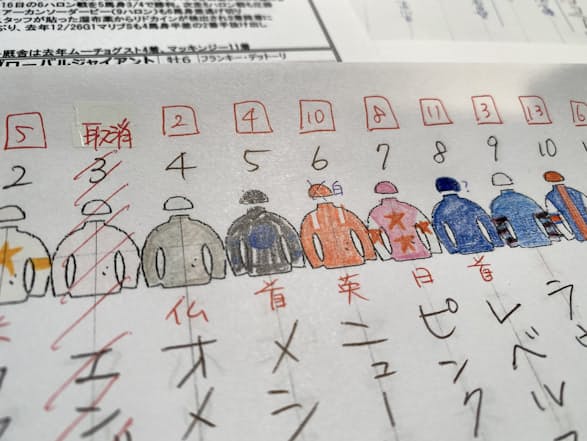 16日の6ハロン戦を5馬身3/4で勝利。次走も
アーカンソーダービー(9ハロン)も
スタッフが貼った湿布薬からリドカインが検出され
ぶり、去年12/26G1マリブSも4馬身半差の2番手抜け出し
厩舎は去年ムーチョグスト4着、マッキンジー11着
グローバルジャイアント 牡6 フランキー・デットーリ
5 取消 2 4 10 8 11 3 13 6
2 3 4 5 6 7 8 9 10
白 ?
仏 首 英 日 首
エ オ メ ニ ピ レ ラ
ン メ シ ュ ン ベ
ー ク ル